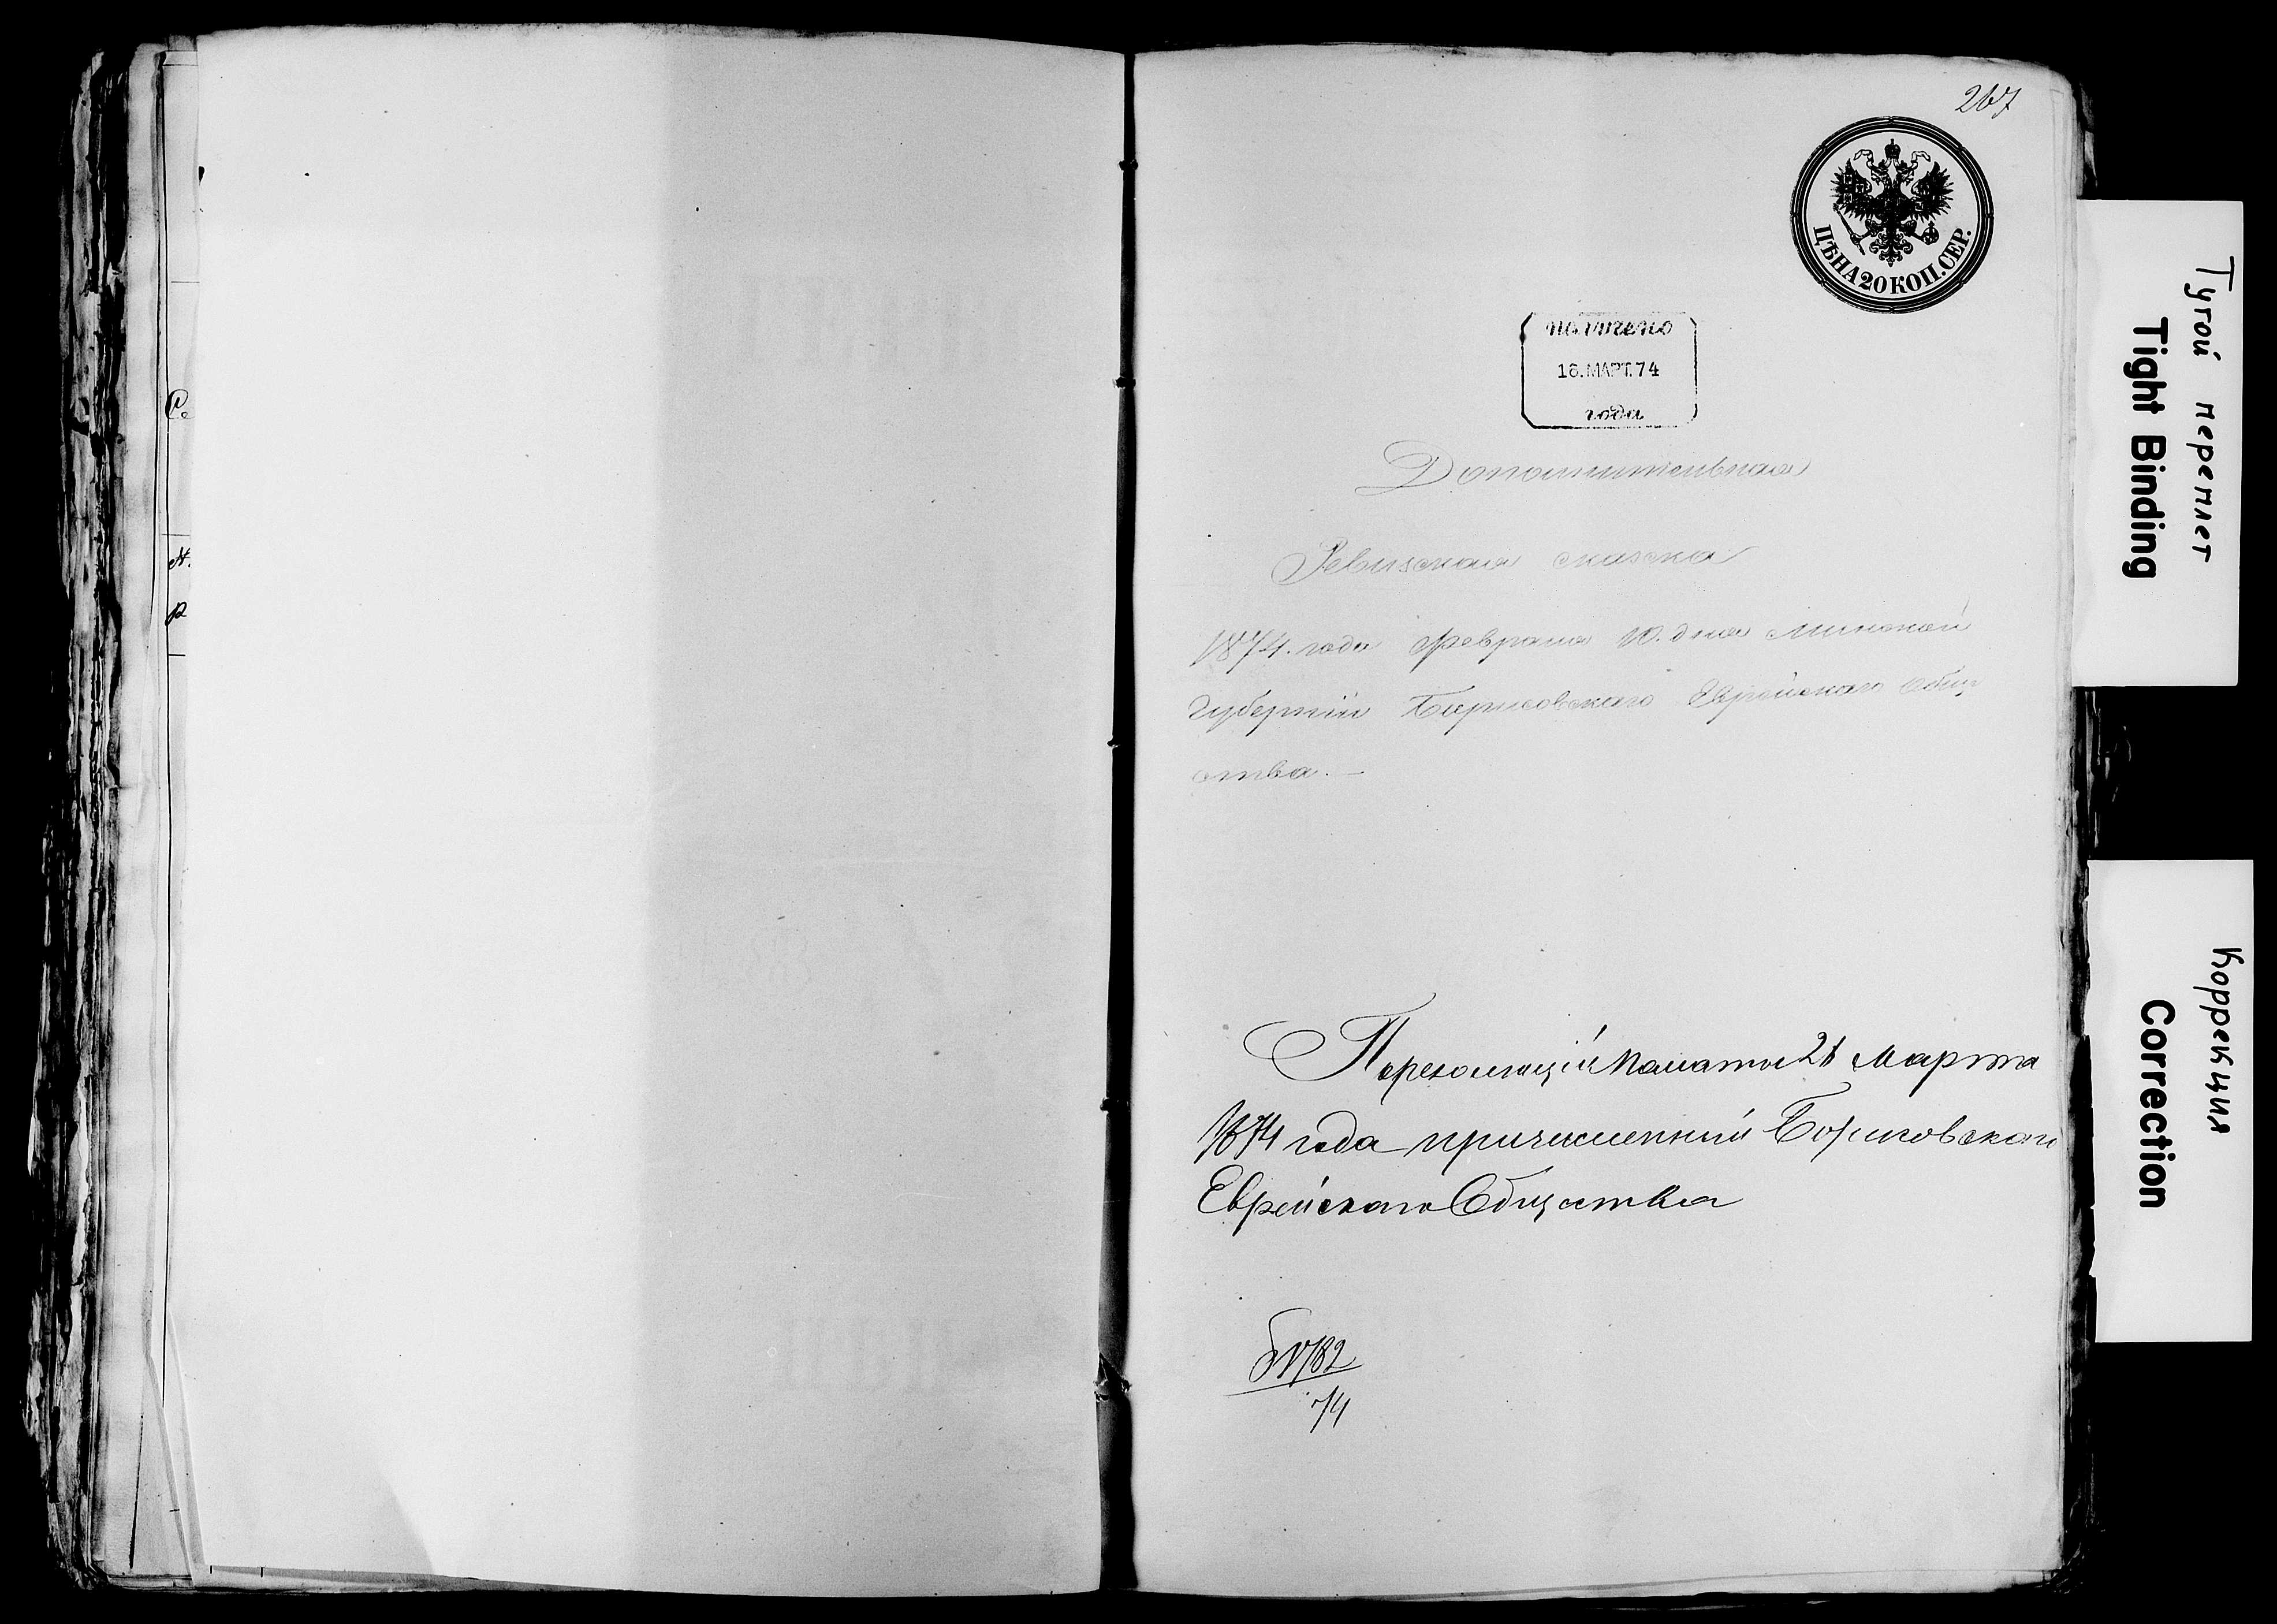 267
ЦѢНА 20 КОП. СЕР.
получено
16. МАРТ. 74
года
Дополнительная
Ревизская сказка
1874. года Февраля 10. дня Минской
Губерніи Борисовскаго Еврейскаго Обще
ства. —
По резолюціи Палаты 21 Марта
1874 года причисленный Борисовскаго
Еврейскаго Общества
74
Тугой переплет
Tight Binding
Коррекция
Correction